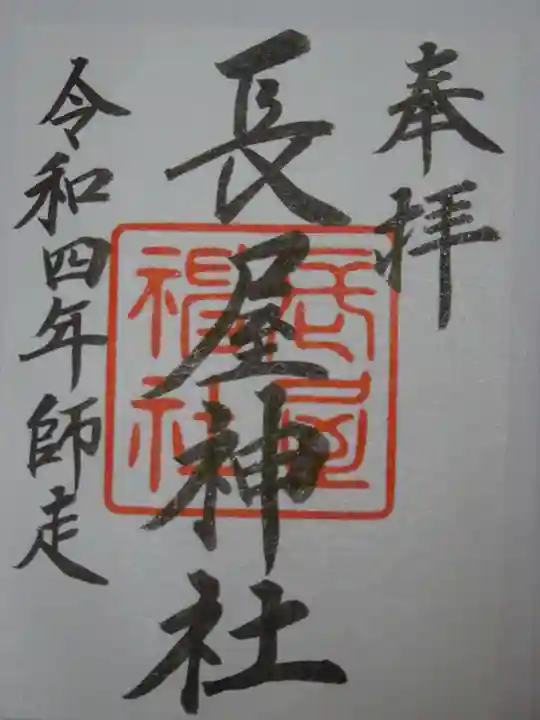 奉拝
長屋神社
令和四年師走
長屋
神社